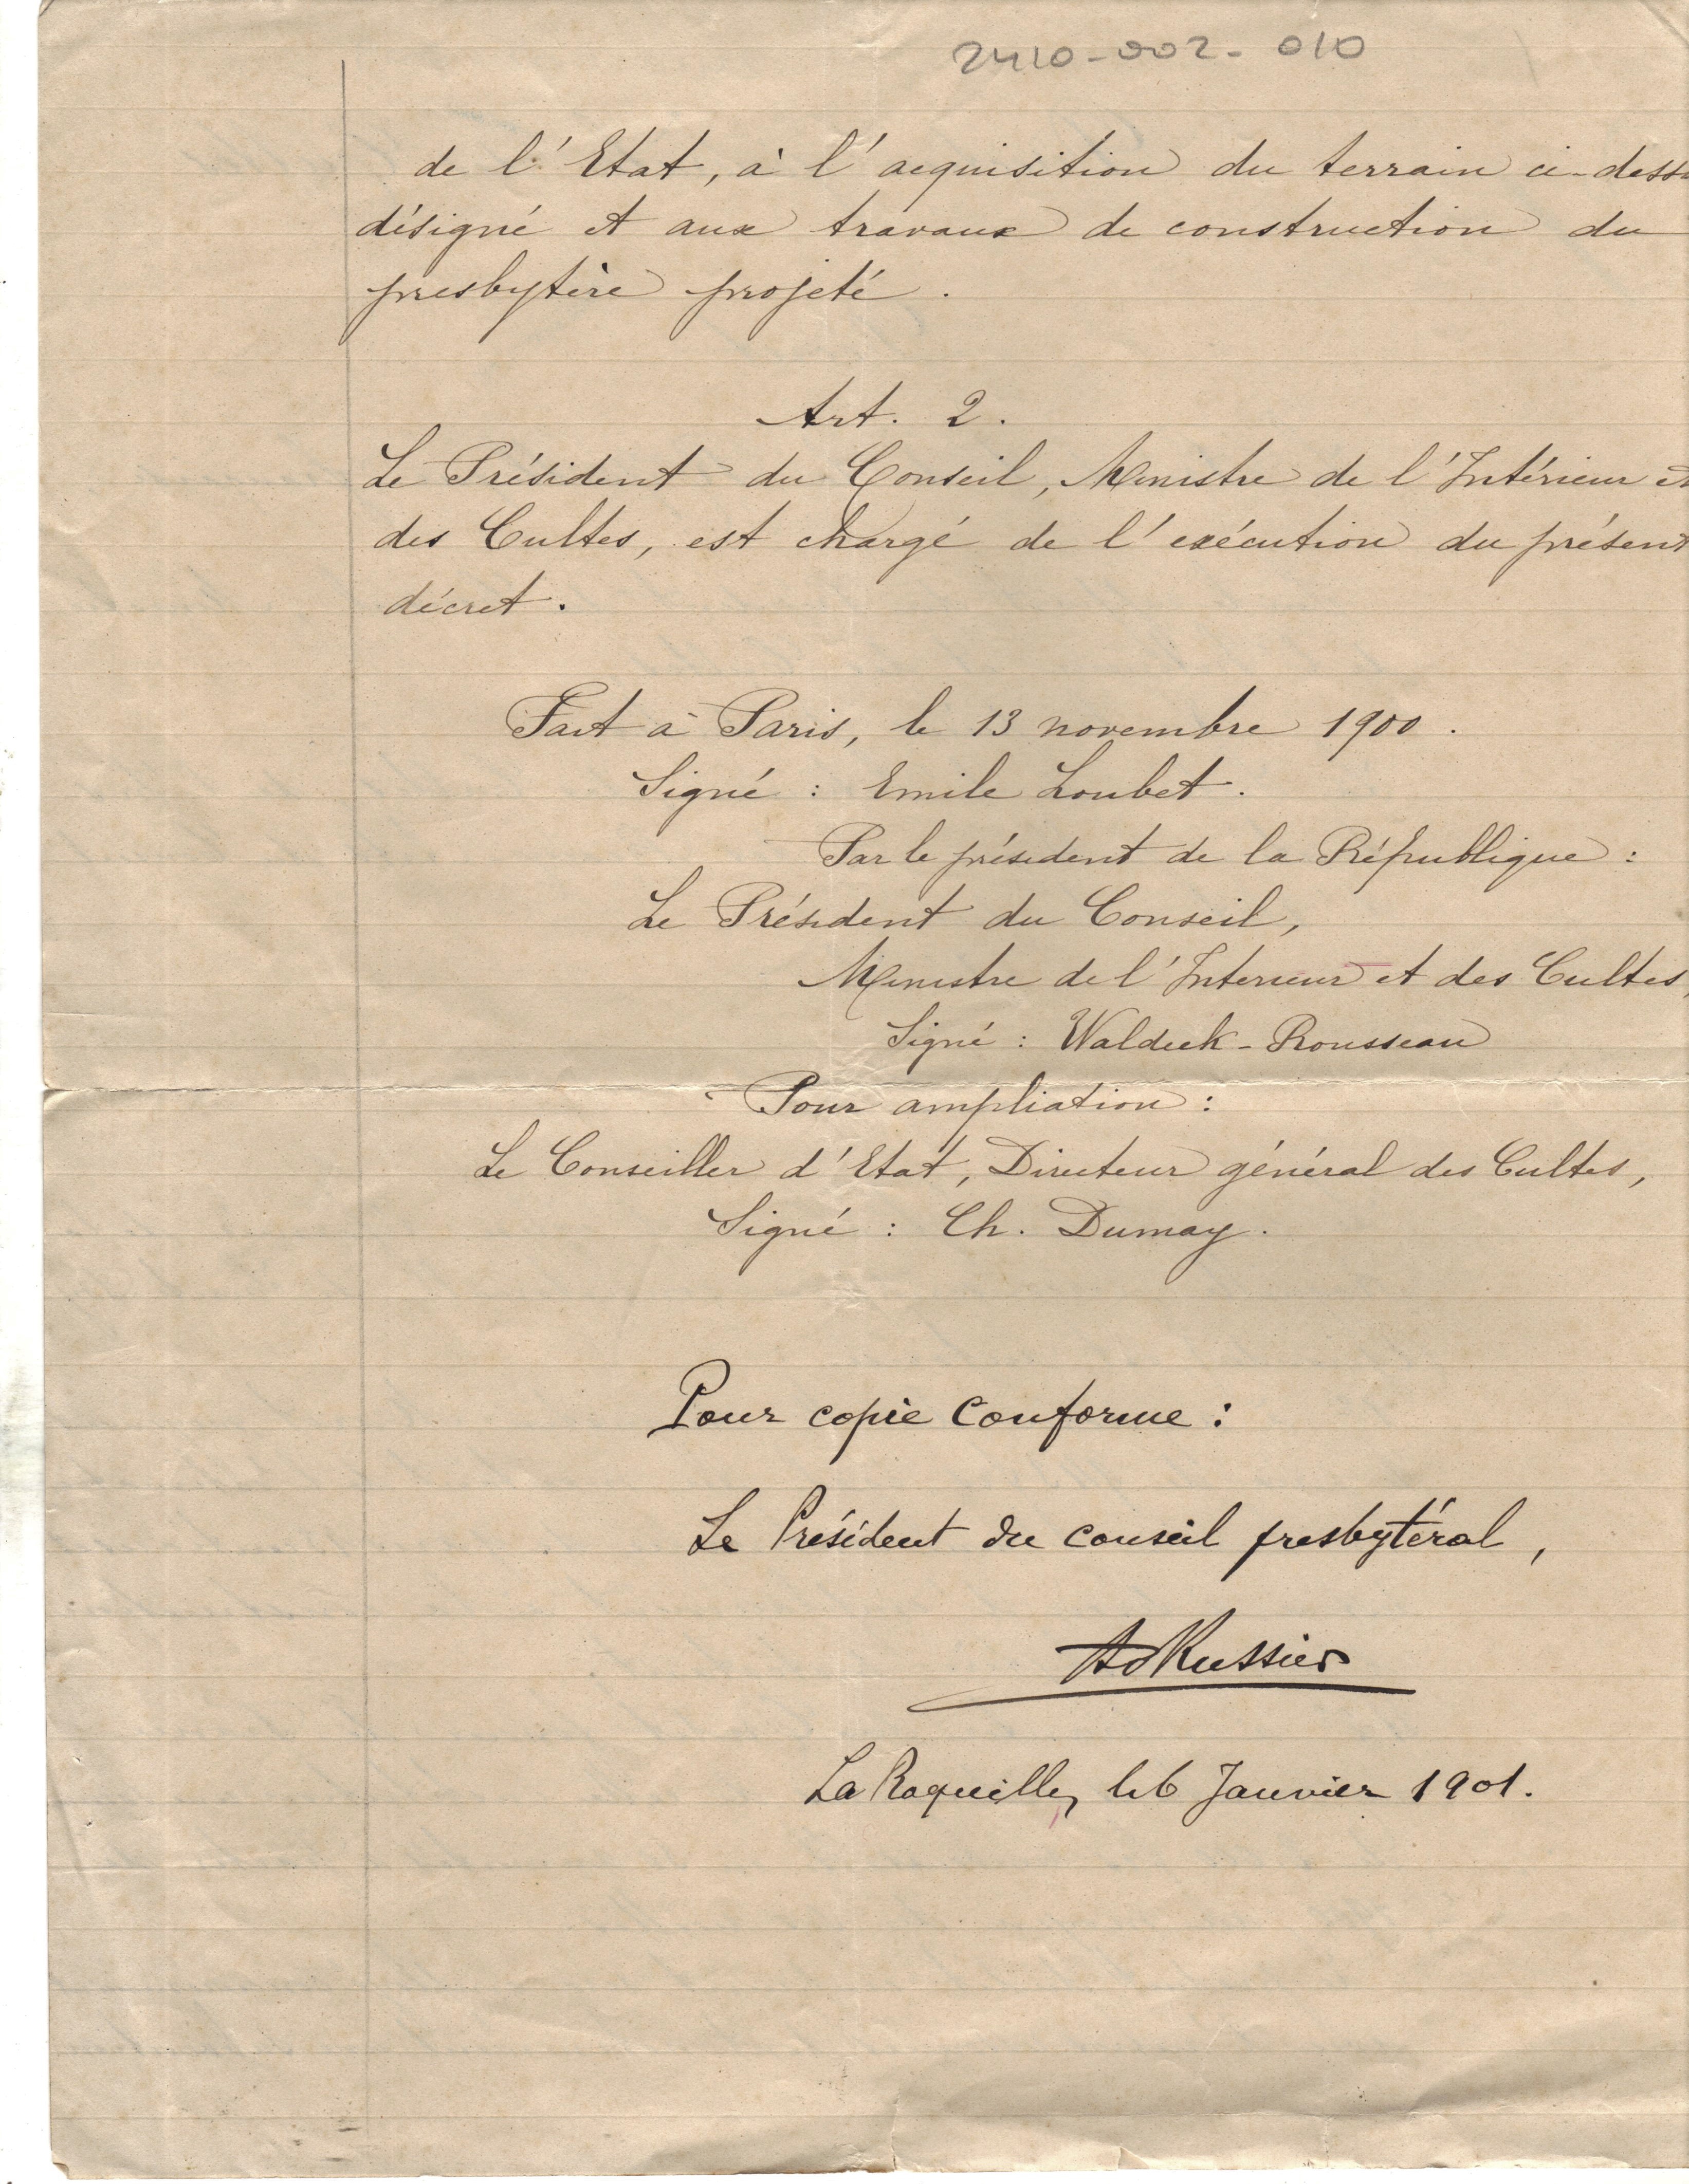 2410-002-010
de l'Etat, à l'acquisition du terrain ci-dess
désigné et aux travaux de construction du
presbytère projeté.
Art. 2.
Le Président du Conseil, Ministre de l'Intérieur et
des Cultes, est chargé de l'exécution du présent
décret.
Fait à Paris, le 13 novembre 1900.
Signé : Emile Loubet.
Par le président de la République :
Le Président du Conseil,
Ministre de l'Interieur et des Cultes,
Signé : Waldeck-Rousseau
Pour ampliation :
Le Conseiller d'Etat, Directeur général des Cultes,
Signé : Ch. Dumay.
Pour copie conforme :
Le Président du conseil presbytéral,
La Roquille, le 6 Janvier 1901.